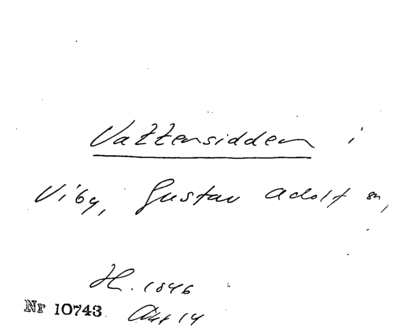 Vattensidden i
Viby, Gustav Adolf sn,
H. 1846
Nr 10743 14